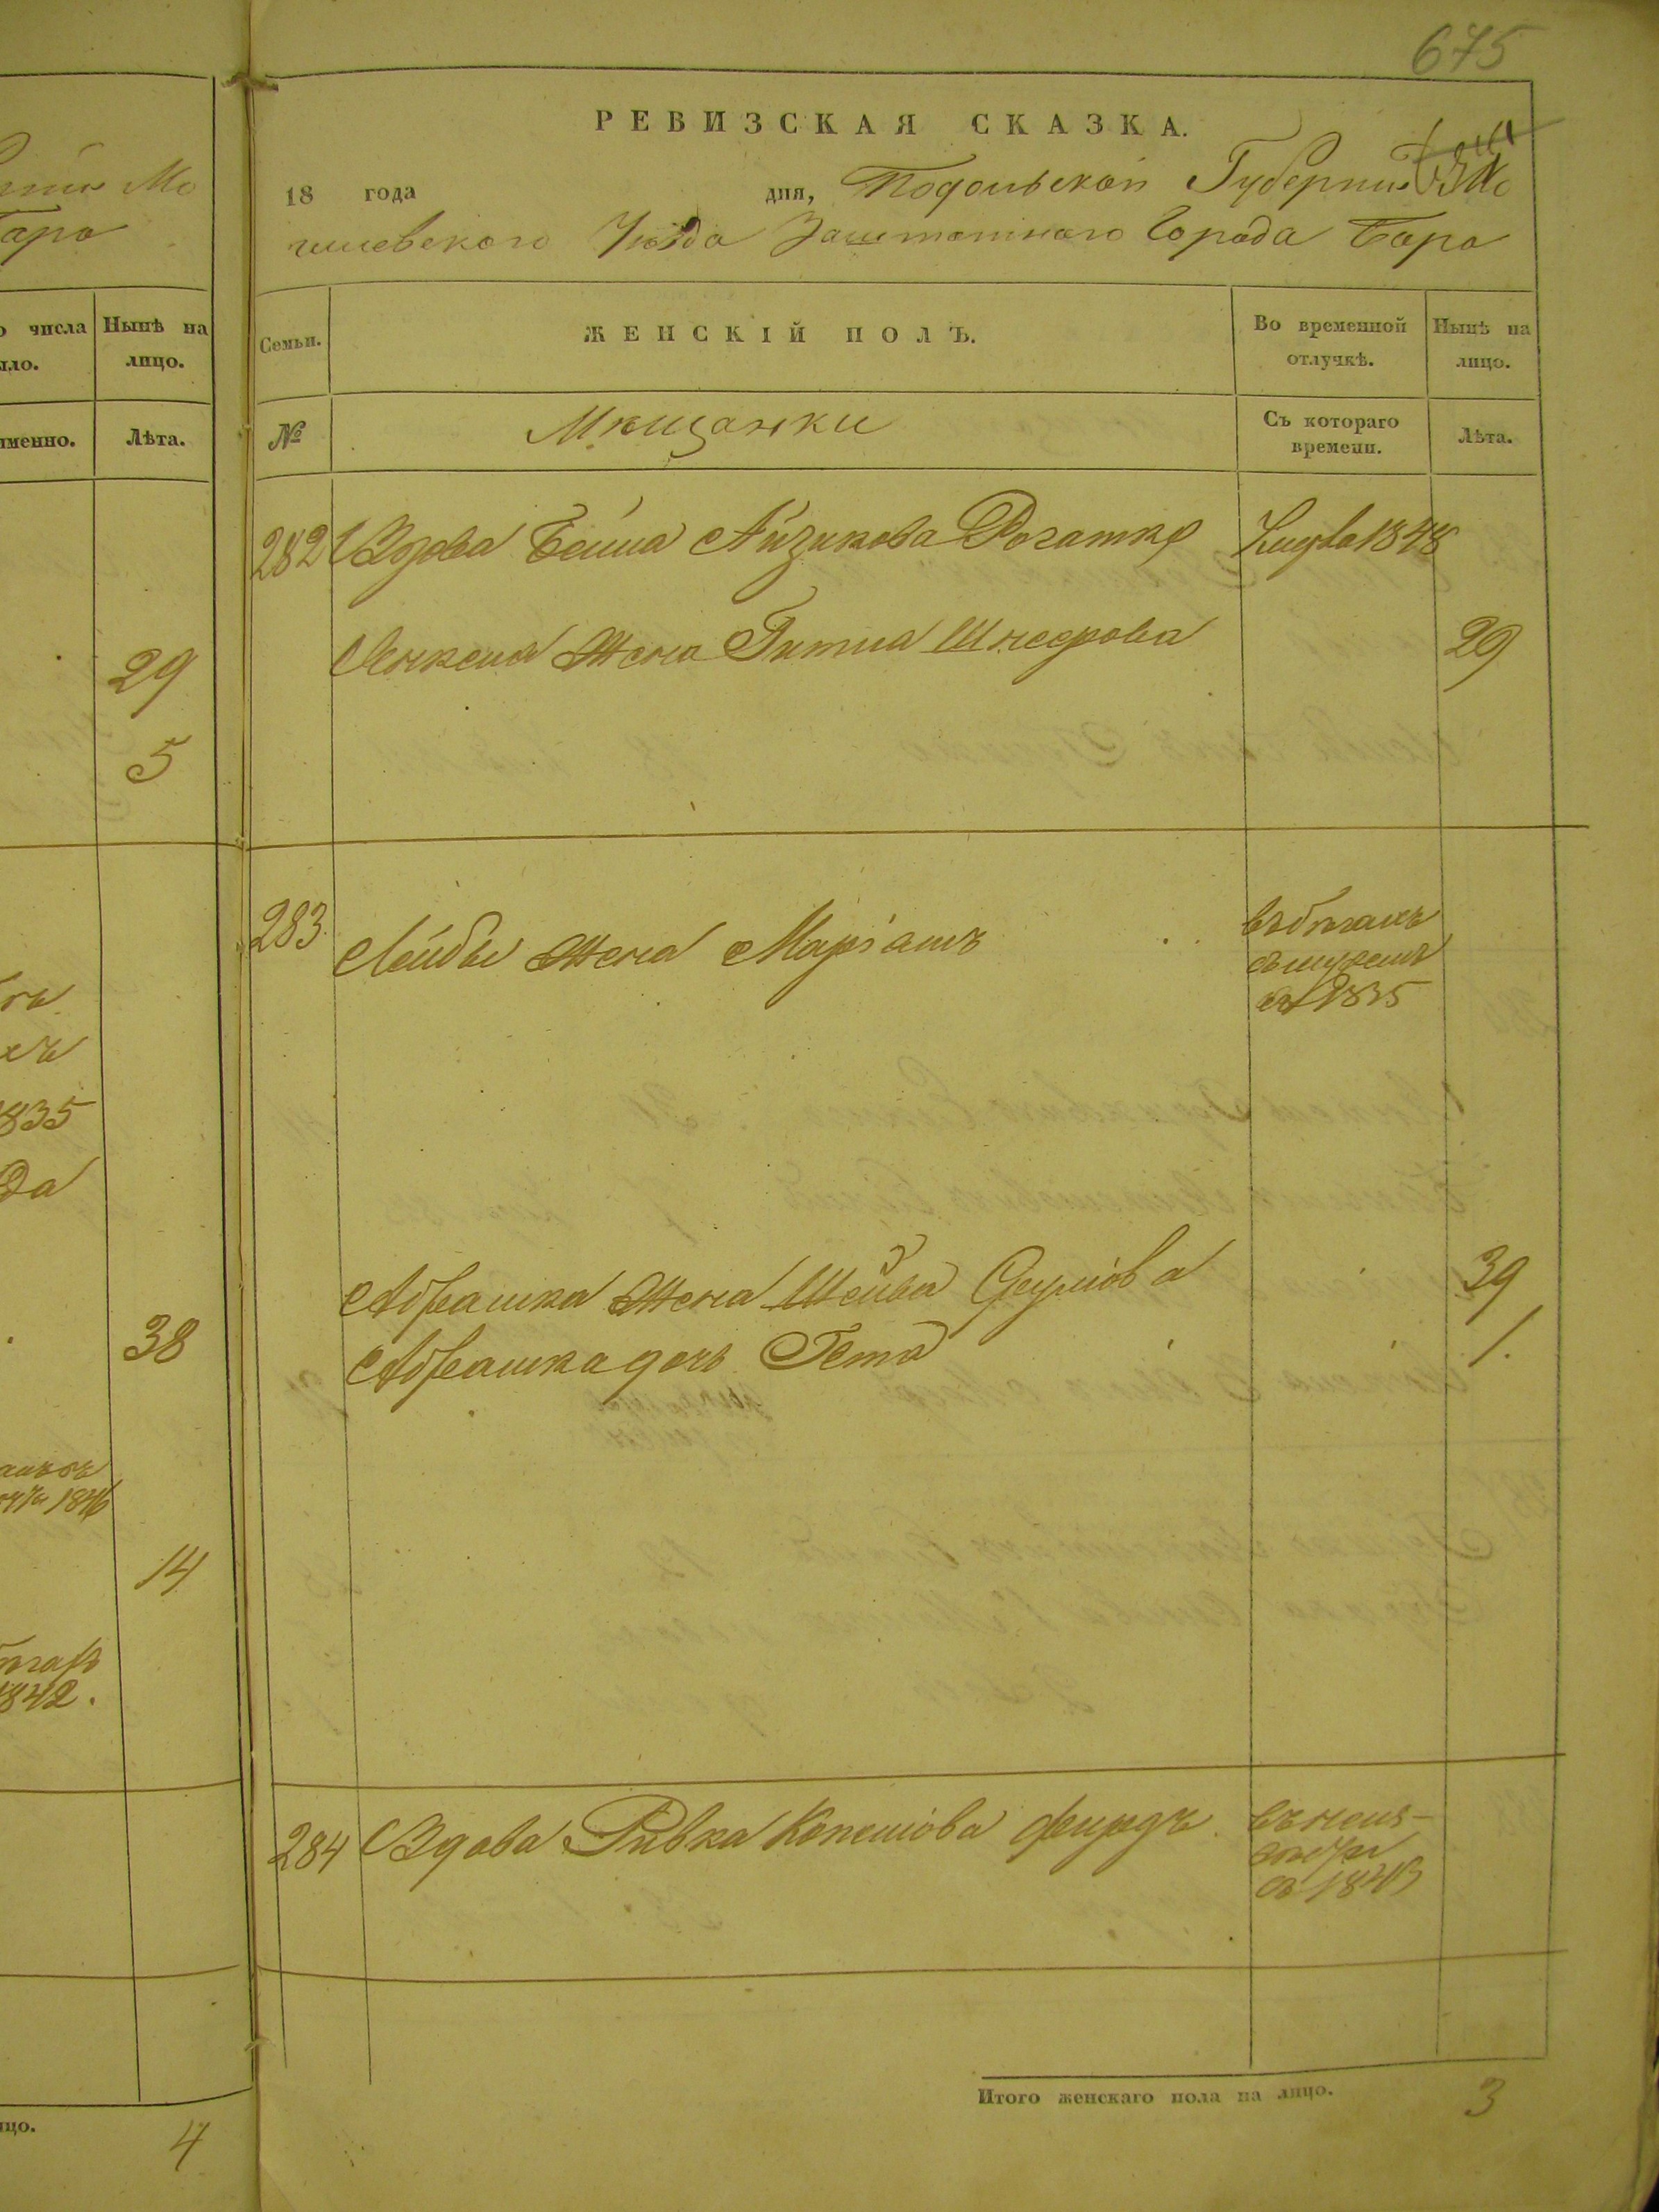 675
РЕВИЗСКАЯ СКАЗКА.
18 года дня, Подольской Губернии Мо
гилевского Уѣзда Заштатного Города Бара
Бара
о числа Нынѣ на
ыло. лицо.
именно. Лѣта.
Семьи. ЖЕНСКІЙ ПОЛЪ. Во временной отлучкѣ. Нынѣ на лицо.
№ Мѣщанки Съ котораго времени. Лѣта.
282 Вдова Бейла Айзикова Рогатко 1848
жена Гитла Шнеерова 29
29
5
283 Лейбы жена Маріамъ въ бѣгахъ
съ мужемъ
съ 1835
1835
Абрашка жена Шейва 39
Абрашка дочь Гета 1.
38
1846
14
1842.
284 Вдова Ривка
съ 1843
Итого женскаго пола на лицо. 3
ицо. 4